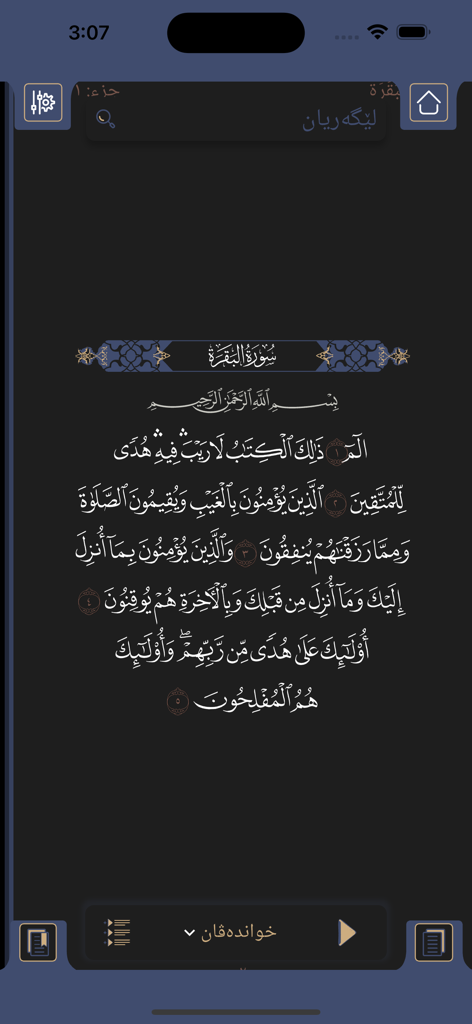 3:07
جزء: ١
البقرة
لێگەریان
سُورَةُ البَقَرَةِ
بِسْمِ اللَّهِ الرَّحْمَٰنِ الرَّحِيمِ
الٓمٓ ١ ذَٰلِكَ ٱلْكِتَٰبُ لَا رَيْبَ ۛ فِيهِ ۛ هُدًى
لِّلْمُتَّقِينَ ٢ ٱلَّذِينَ يُؤْمِنُونَ بِٱلْغَيْبِ وَيُقِيمُونَ ٱلصَّلَوٰةَ
وَمِمَّا رَزَقْنَٰهُمْ يُنفِقُونَ ٣ وَٱلَّذِينَ يُؤْمِنُونَ بِمَآ أُنزِلَ
إِلَيْكَ وَمَآ أُنزِلَ مِن قَبْلِكَ وَبِٱلْءَاخِرَةِ هُمْ يُوقِنُونَ ٤
أُو۟لَٰٓئِكَ عَلَىٰ هُدًى مِّن رَّبِّهِمْ ۖ وَأُو۟لَٰٓئِكَ
هُمُ ٱلْمُفْلِحُونَ ٥
خواندەڤان